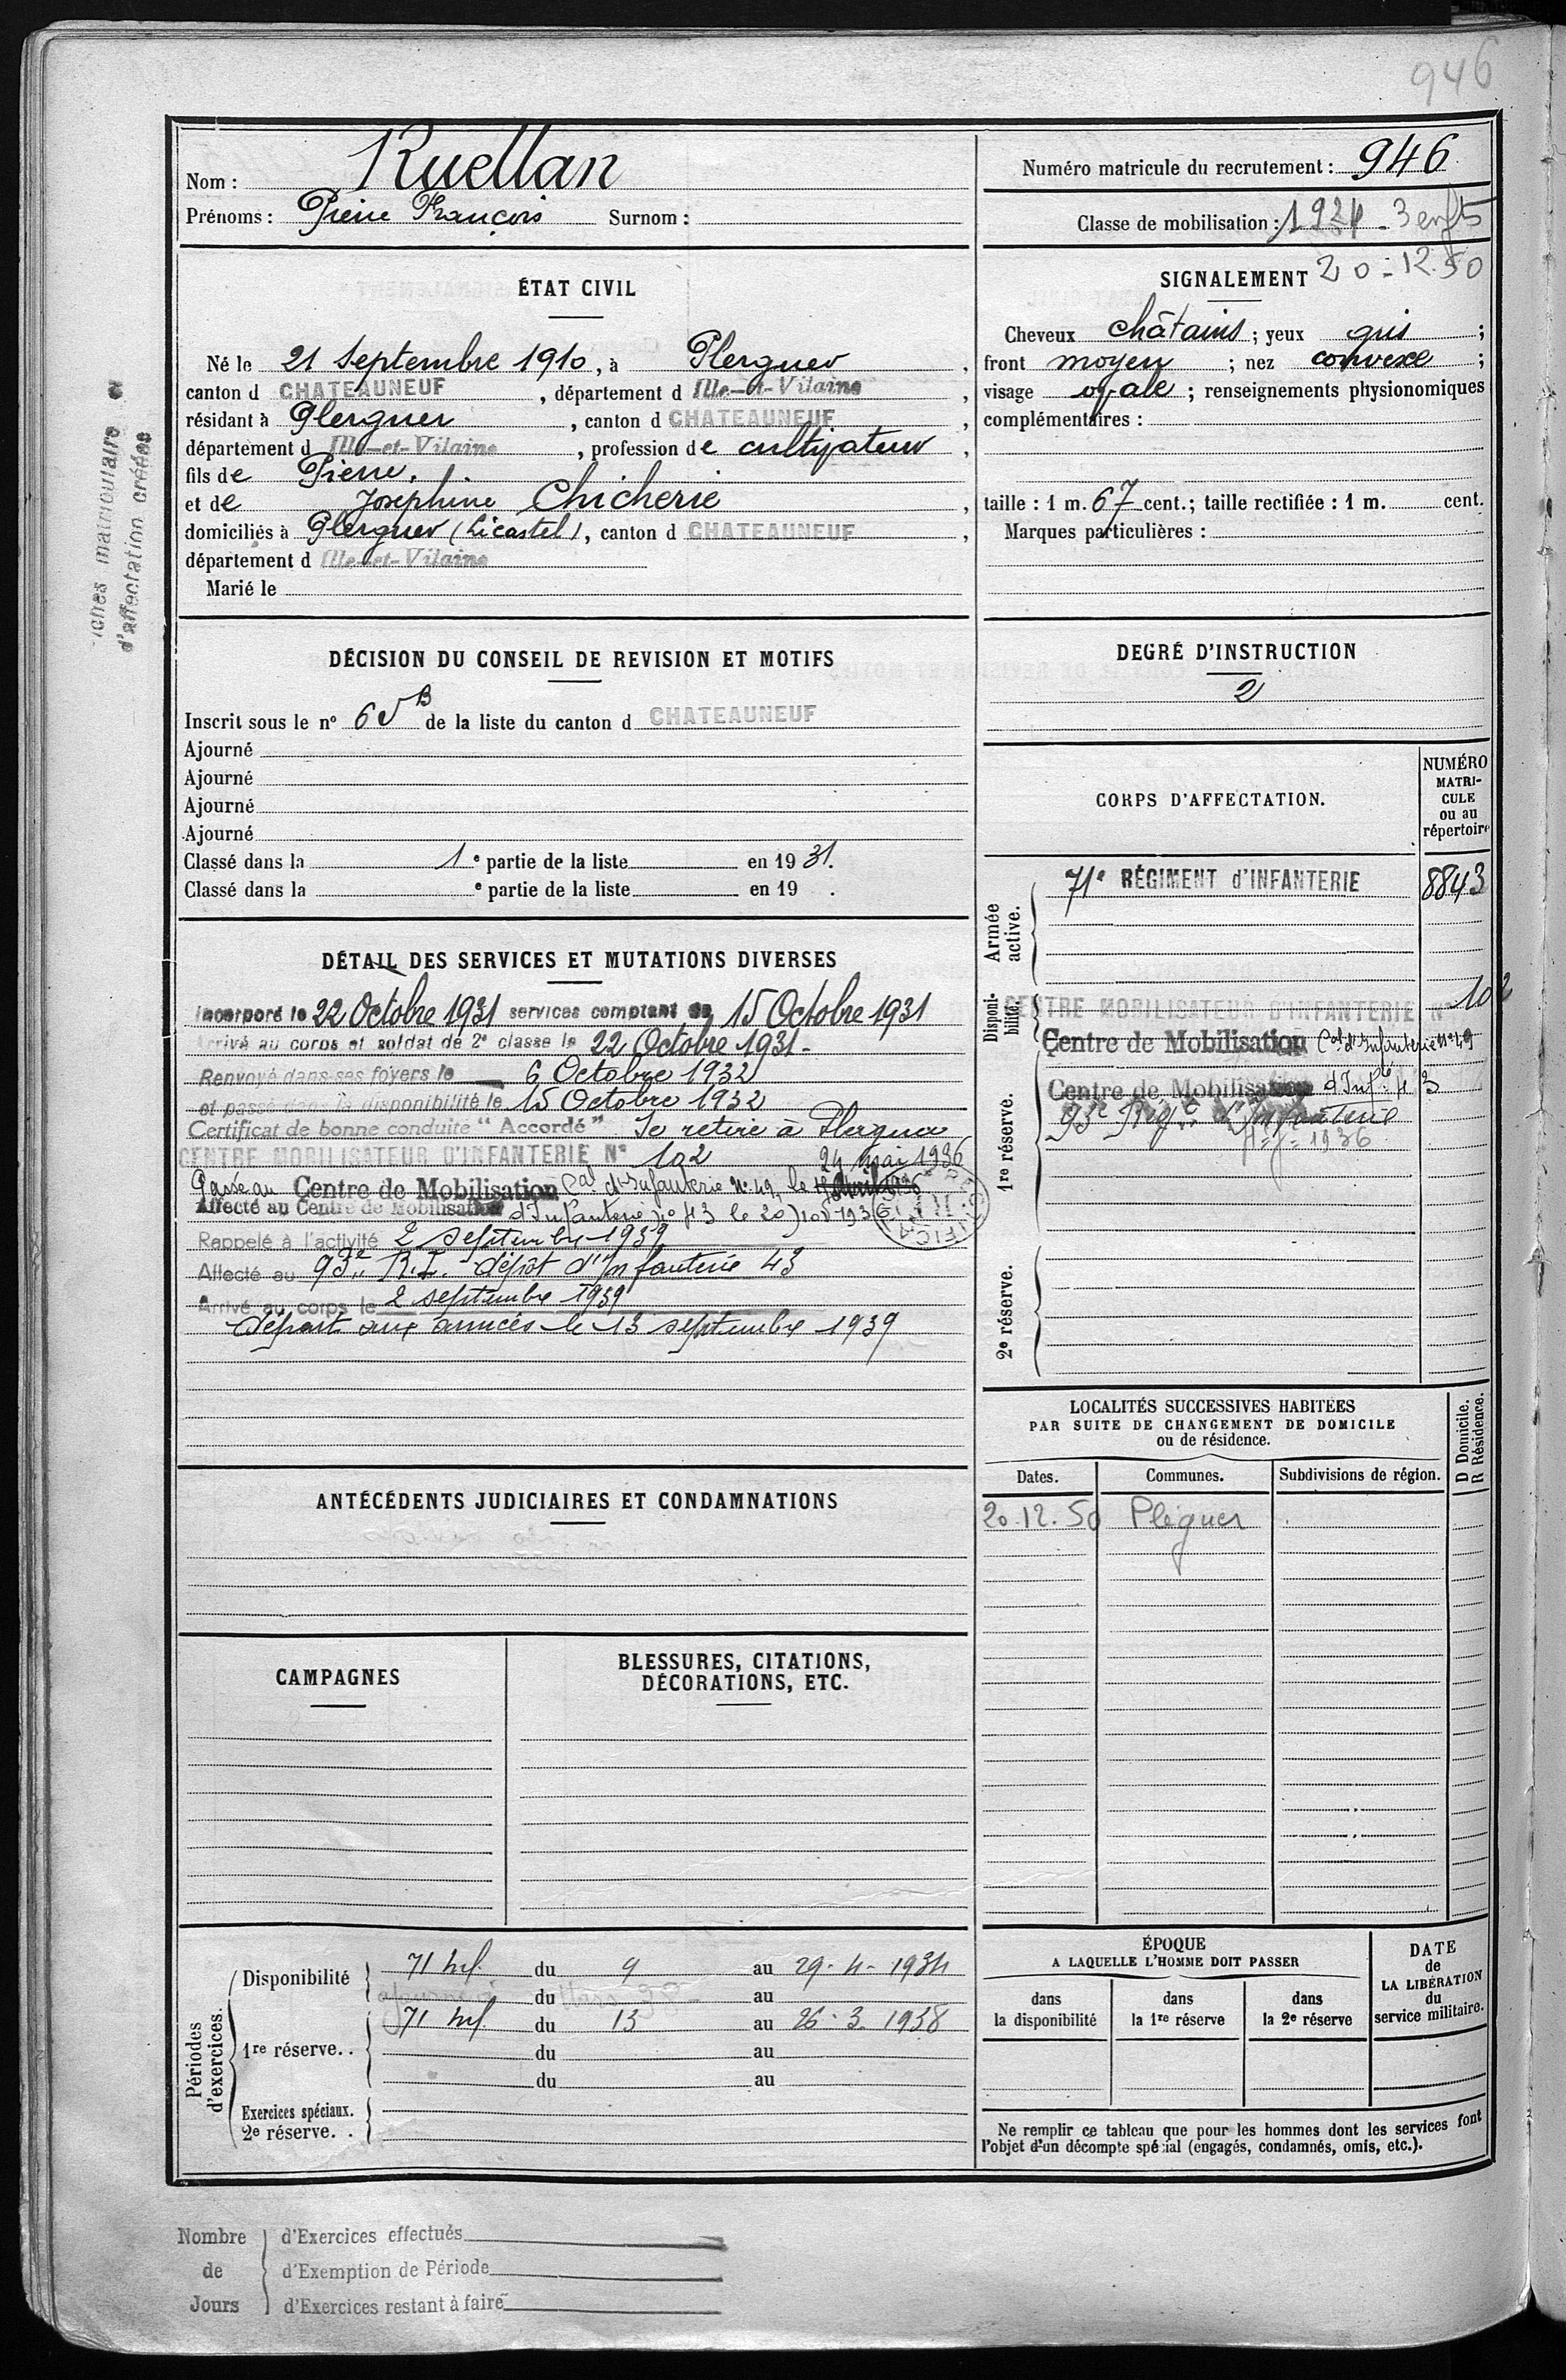 946
Nom : Ruellan
Prénoms : Pierre François Surnom :
Numéro matricule du recrutement : 946
Classe de mobilisation : 1924 - 3 enfts
20-12.50
ÉTAT CIVIL
Né le 21 Septembre 1910, à Plerguer,
canton d CHATEAUNEUF, département d Ille-et-Vilaine,
résidant à Plerguer, canton d CHATEAUNEUF,
département d Ille-et-Vilaine, profession de cultivateur,
fils de Pierre,
et de Joséphine Chicherie,
domiciliés à Plerguer (Licastel), canton d CHATEAUNEUF,
département d Ille-et-Vilaine
Marié le
SIGNALEMENT
Cheveux châtains ; yeux gris ;
front moyen ; nez convexe ;
visage ovale ; renseignements physionomiques
complémentaires :
taille : 1 m. 67 cent. ; taille rectifiée : 1 m. cent.
Marques particulières :
iches matriculaire
d'affectation créées
DÉCISION DU CONSEIL DE REVISION ET MOTIFS
Inscrit sous le nº de la liste du canton d CHATEAUNEUF
Ajourné
Ajourné
Ajourné
Ajourné
Classé dans la 1e partie de la liste en 1931.
Classé dans la e partie de la liste en 19 .
DEGRÉ D'INSTRUCTION
2
CORPS D'AFFECTATION.
NUMÉRO
MATRI-
CULE
ou au
répertoire
Armée
active.
71e RÉGIMENT d'INFANTERIE 8843
Disponi-
bilité.
CENTRE MOBILISATEUR D'INFANTERIE Nº 102
Centre de Mobilisation Cal d'Infanterie nº 49
1re réserve.
Centre de Mobilisation d'Infie 43
93e Régt d'Infanterie
1936
2e réserve.
DÉTAIL DES SERVICES ET MUTATIONS DIVERSES
Incorporé le 22 Octobre 1931 services comptant du 15 Octobre 1931
Arrivé au corps et soldat de 2e classe le 22 Octobre 1931.
Renvoyé dans ses foyers le 6 Octobre 1932
et passé dans la disponibilité le 15 Octobre 1932
Certificat de bonne conduite "Accordé" Se retire à Plerguer
CENTRE MOBILISATEUR D'INFANTERIE Nº 102
24 mai 1936
Passé au Centre de Mobilisation Cal d'Infanterie Nº 49, le
Affecté au Centre de Mobilisation d'Infanterie nº 43 le 20 nov 1936
Rappelé à l'activité 2 septembre 1939
Affecté au 93e R.I. dépôt d'Infanterie 43
Arrivé au corps le 2 septembre 1939
départ aux armées le 13 septembre 1939
LOCALITÉS SUCCESSIVES HABITÉES
PAR SUITE DE CHANGEMENT DE DOMICILE
ou de résidence.
D Domicile.
R Résidence.
Dates. Communes. Subdivisions de région.
20.12.50 Pleguer
ANTÉCÉDENTS JUDICIAIRES ET CONDAMNATIONS
CAMPAGNES
BLESSURES, CITATIONS,
DÉCORATIONS, ETC.
Périodes
d'exercices.
Disponibilité 71 Inf. du 9 au 29-4-1934
du au
1re réserve. . 71 Inf du 13 au 26-3-1938
du au
du au
Exercices spéciaux.
2e réserve. .
ÉPOQUE
A LAQUELLE L'HOMME DOIT PASSER
dans
la disponibilité
dans
la 1re réserve
dans
la 2e réserve
DATE
de
LA LIBÉRATION
du
service militaire.
Ne remplir ce tableau que pour les hommes dont les services font
l'objet d'un décompte spécial (engagés, condamnés, omis, etc.).
Nombre
de
Jours
d'Exercices effectués
d'Exemption de Période
d'Exercices restant à faire